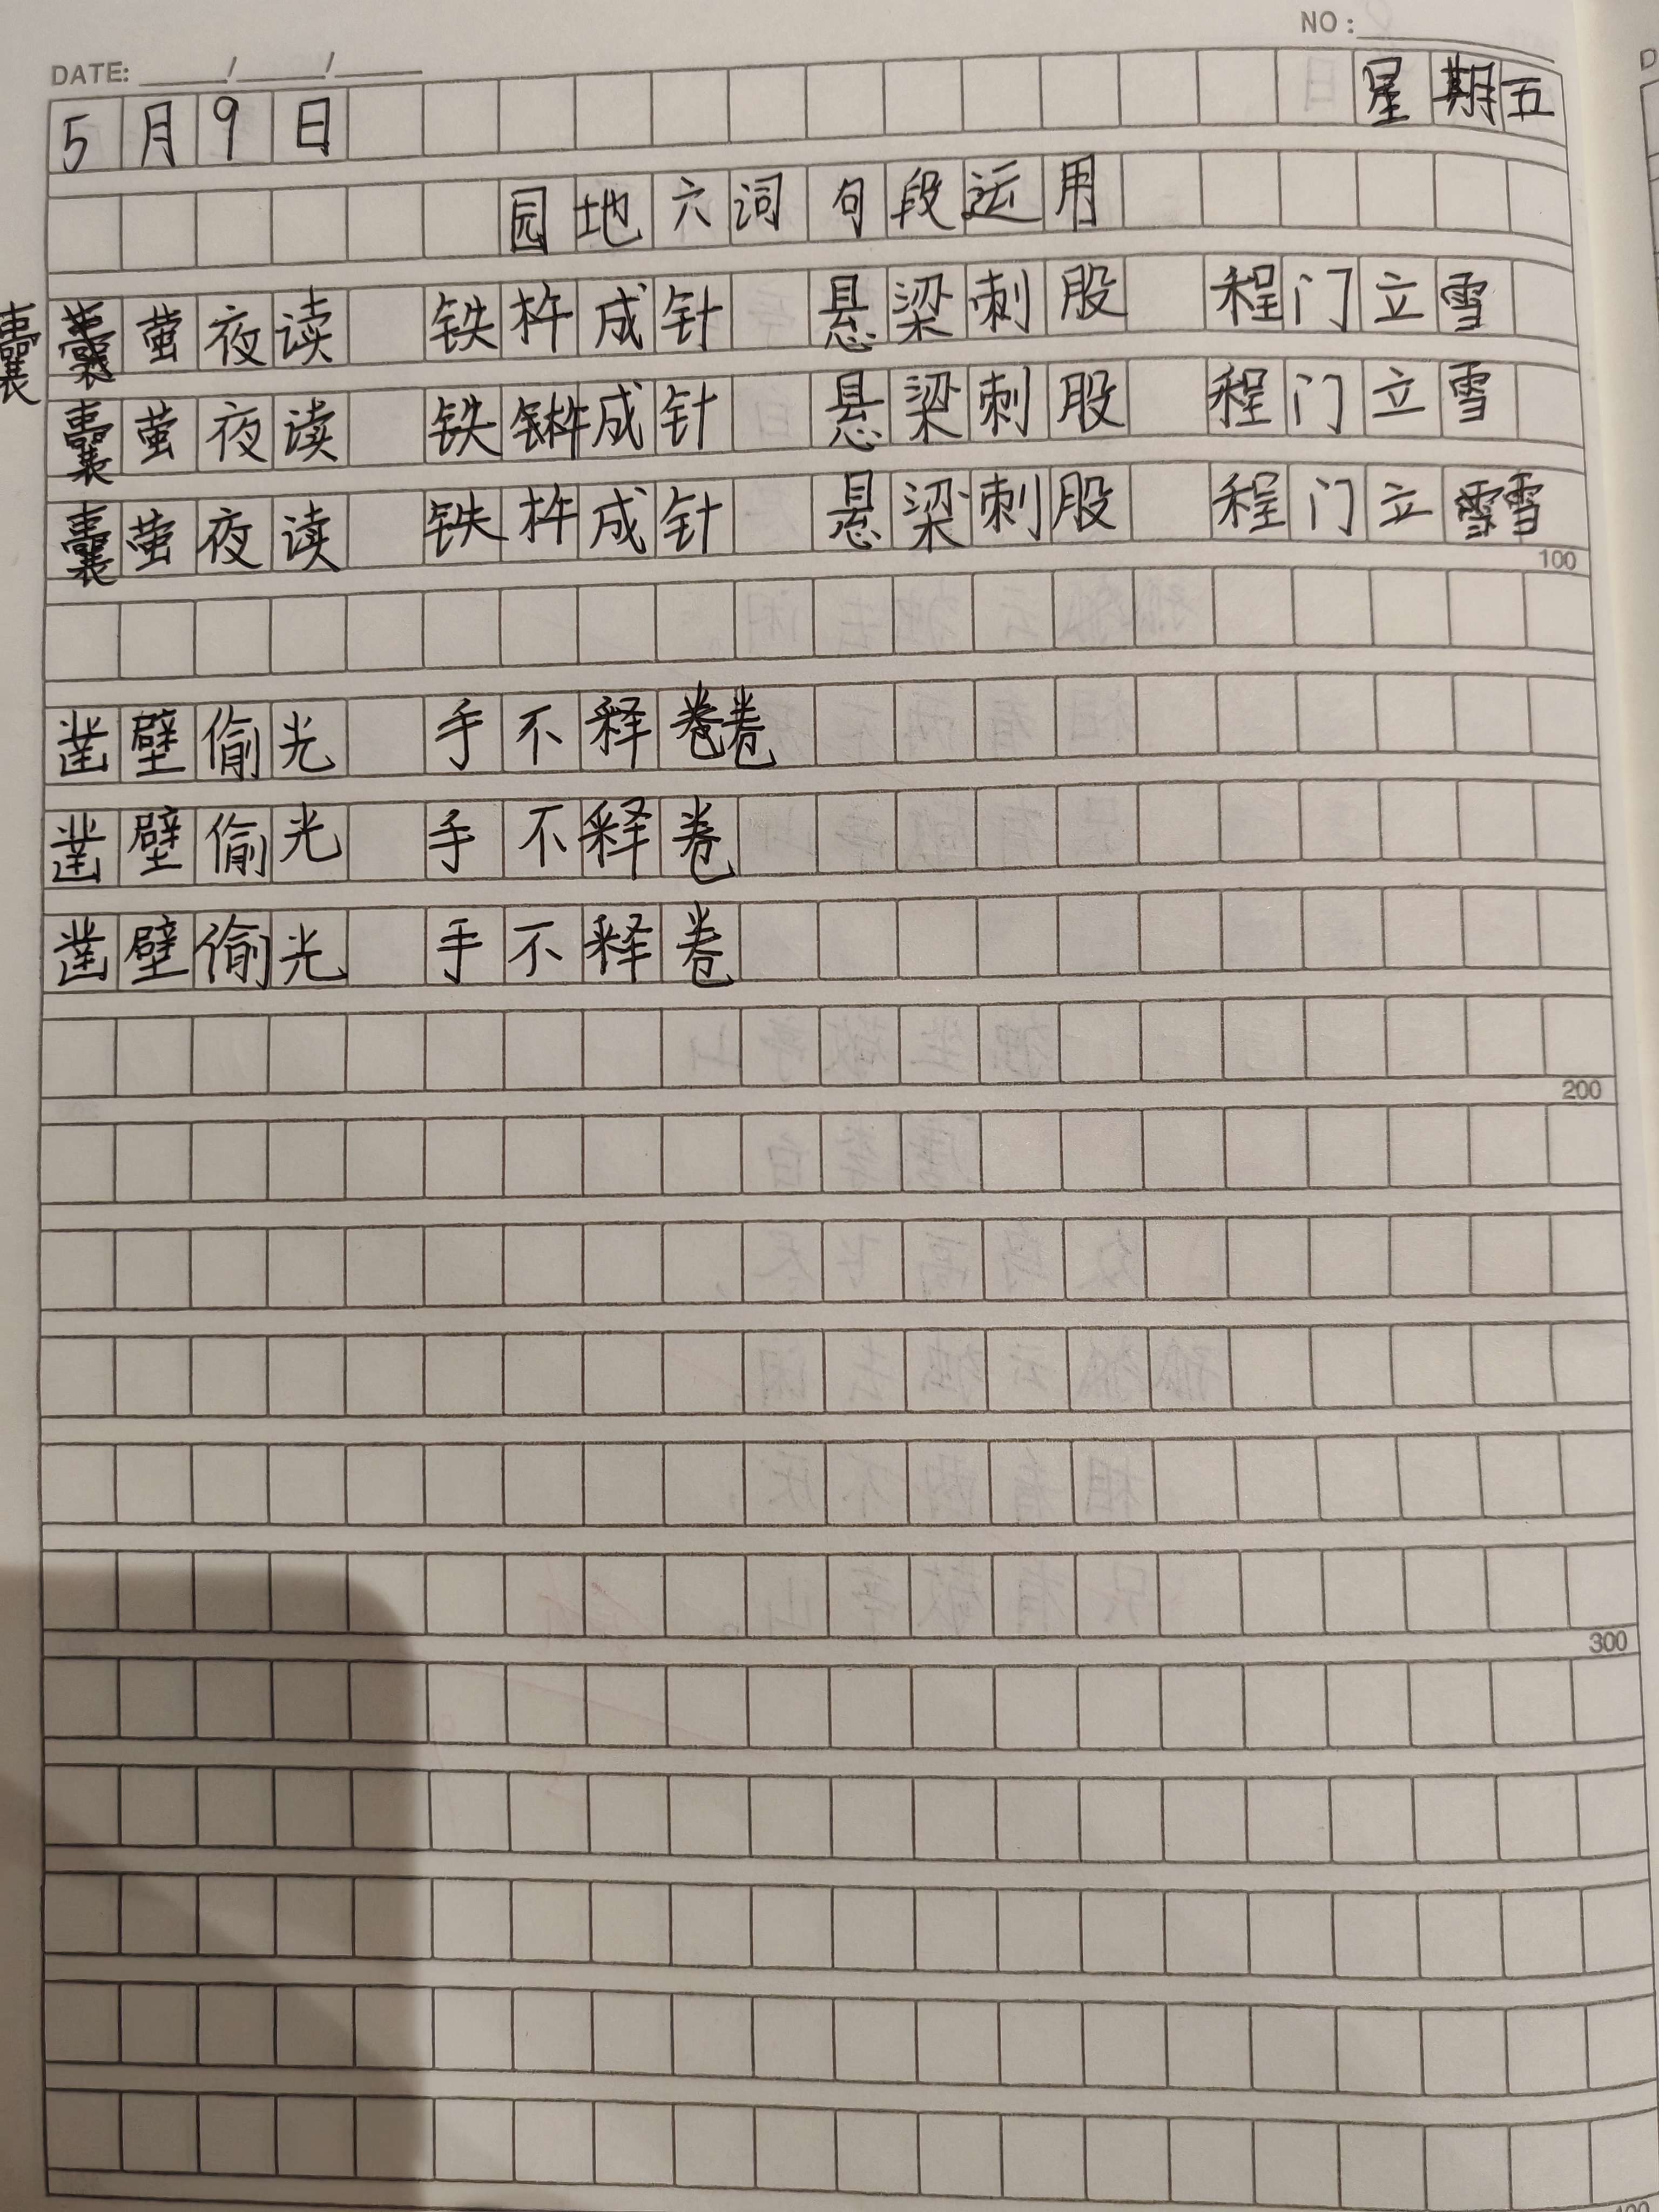 NO:
DATE: / /
5月9日 星期五
园地六词句段运用
囊萤夜读 铁杵成针 悬梁刺股 程门立雪
囊萤夜读 铁杵成针 悬梁刺股 程门立雪
囊萤夜读 铁杵成针 悬梁刺股 程门立雪
100
凿壁偷光 手不释卷
凿壁偷光 手不释卷
凿壁偷光 手不释卷
200
300